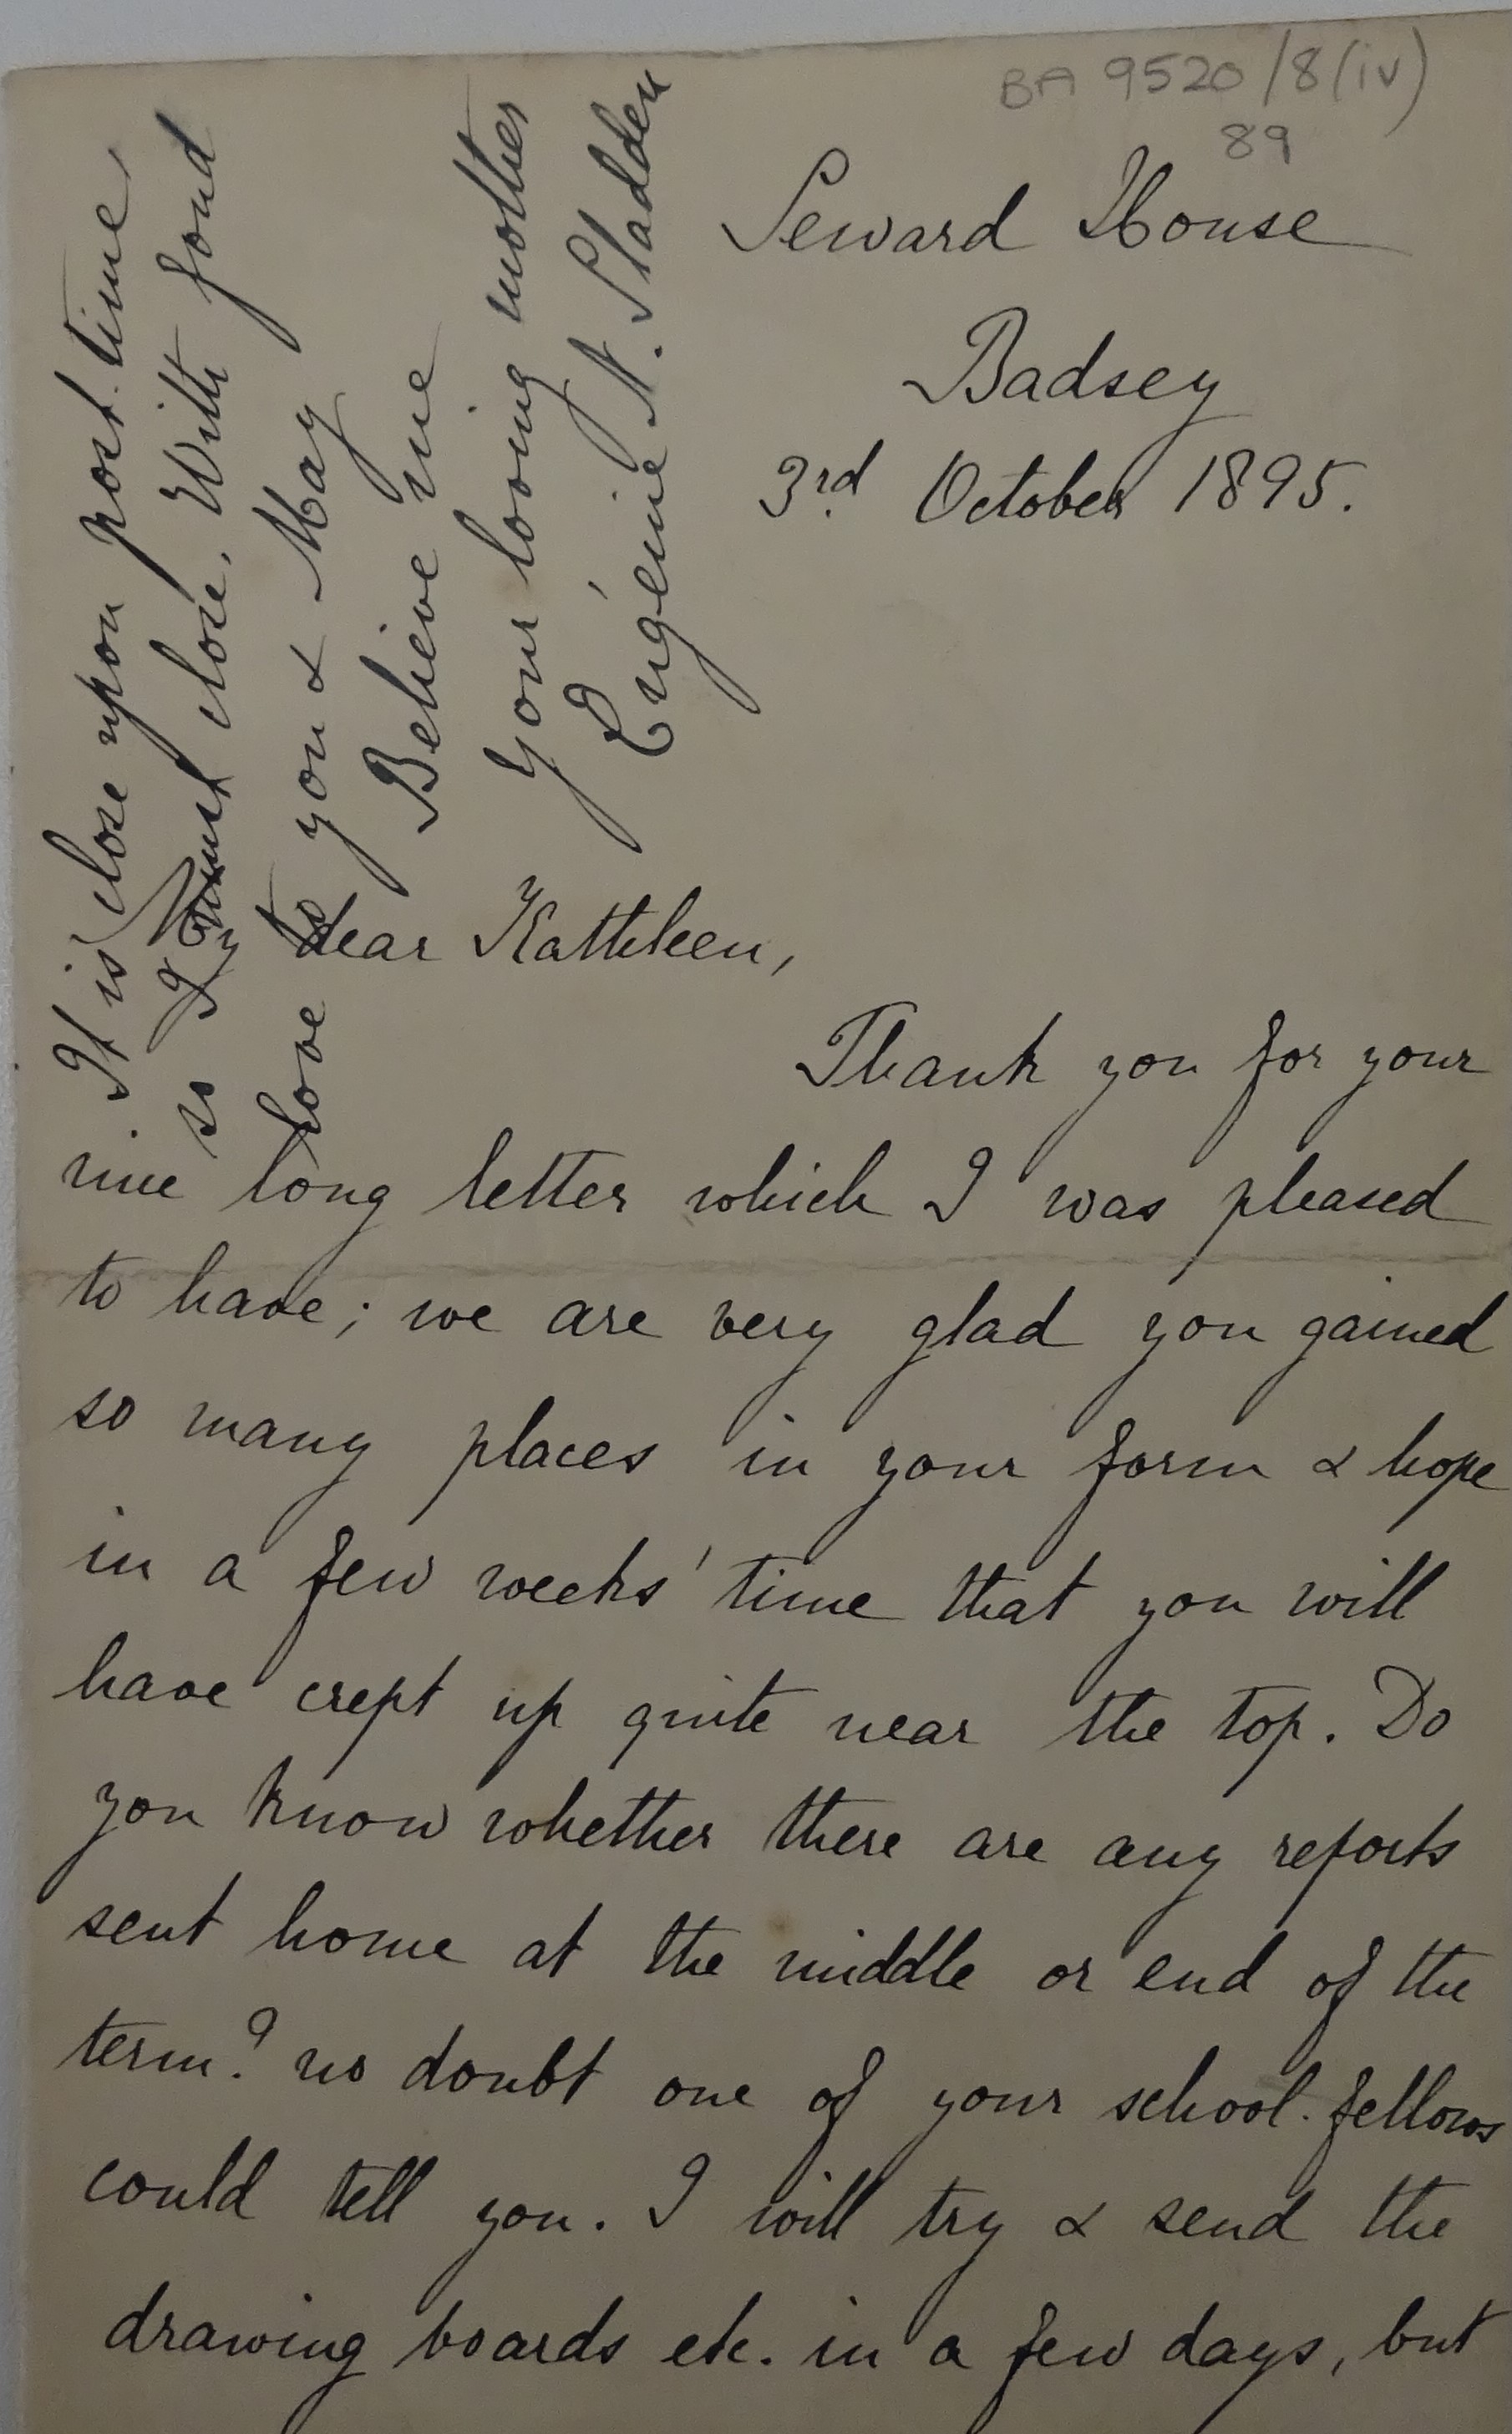 BA 9520/8(iv)
89
Seward House
Badsey
3rd. October 1895.
My dear Kathleen,
Thank you for your
nice long letter which I was pleased
to have; we are very glad you gained
so many places in your form & hope
in a few weeks' time that you will
have crept up quite near the top. Do
you know whether there are any reports
sent home at the middle or end of the
term? no doubt one of your school-fellows
could tell you. I will try & send the
drawing boards etc. in a few days, but
It is close upon post-time
so I must close. With fond
love to you & May
Believe me
your loving mother
Eugénie N. Sladden